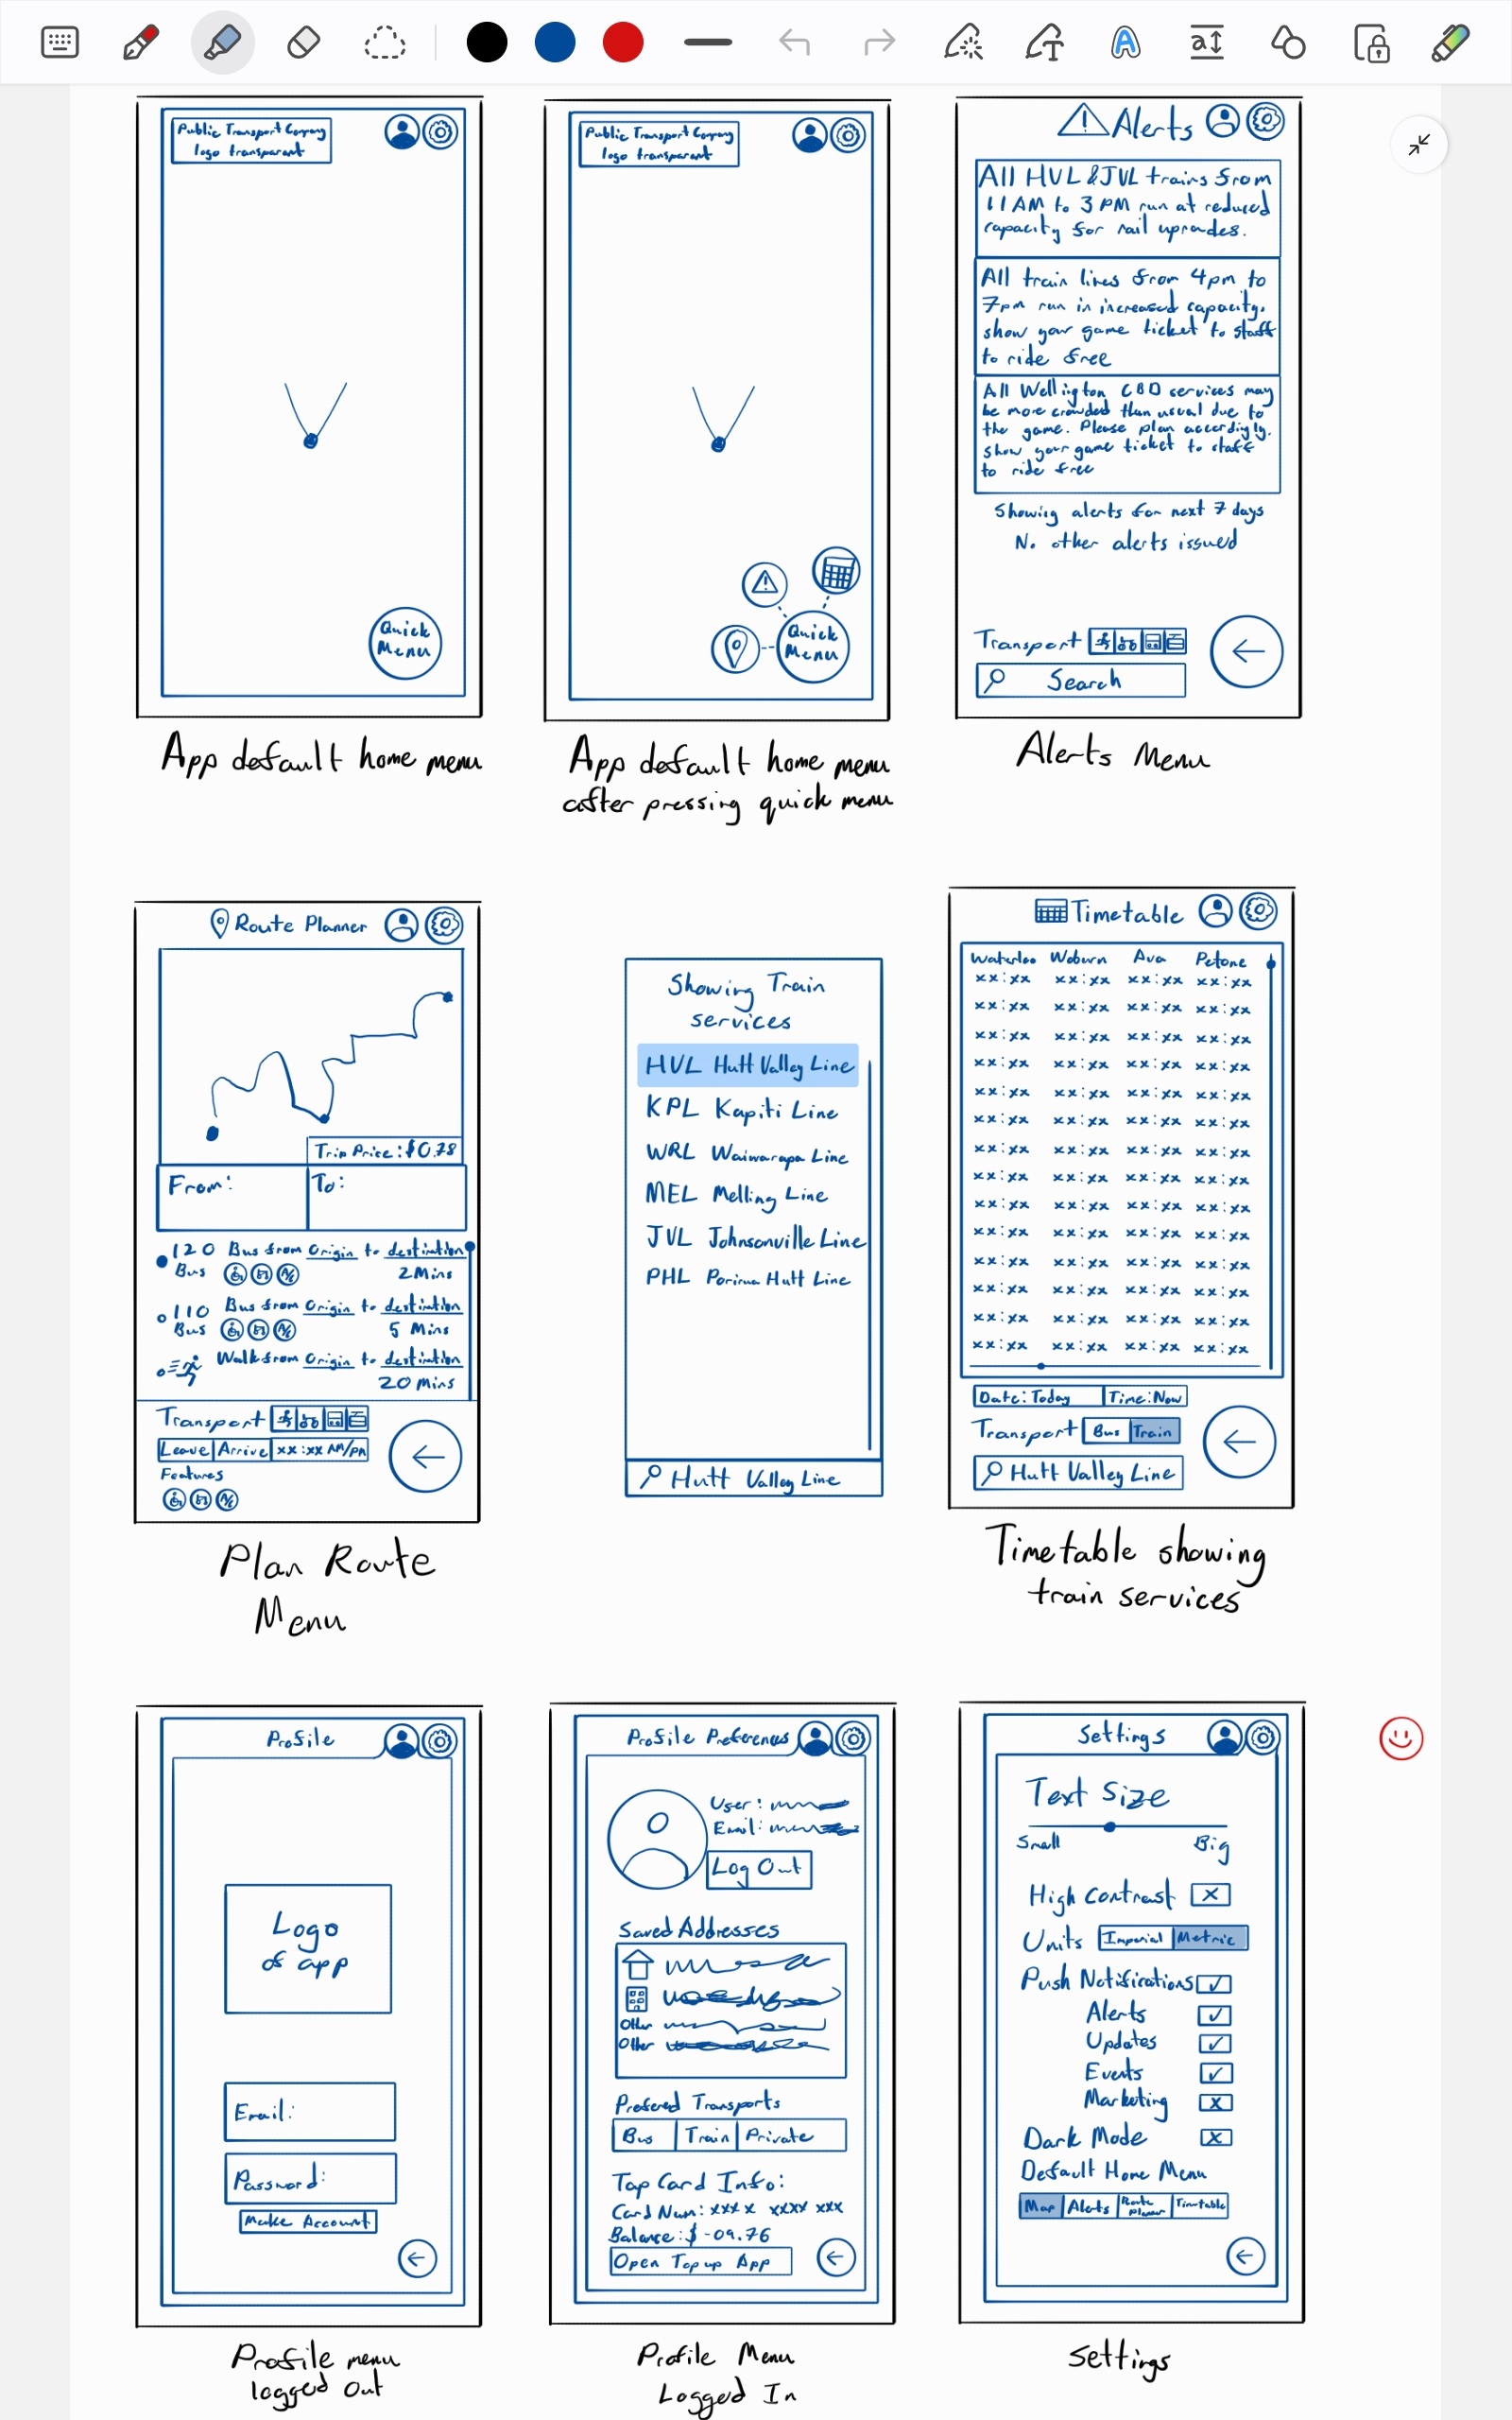 Public Transport Company
logo transparent
Quick
Menu
App default home menu
Public Transport Company
logo transparent
Quick
Menu
App default home menu
after pressing quick menu
Alerts
All HVL & JVL trains from
11AM to 3PM run at reduced
capacity for rail uprades.
All train lines from 4pm to
7pm run in increased capacity.
show your game ticket to staff
to ride free
All Wellington CBD services may
be more crowded than usual due to
the game. Please plan accordigly.
show your game ticket to staff
to ride free
Showing alerts for next 7 days
No other alerts issued
Transport
Search
Alerts Menu
Route Planner
Trip Price: $0.78
From:
To:
120 Bus from Origin to destination
Bus
2 Mins
110 Bus from Origin to destination
Bus
5 Mins
Walk from Origin to destination
20 Mins
Transport
Leave Arrive xx:xx AM/PM
Features
Plan Route
Menu
Showing Train
services
HVL Hutt Valley Line
KPL Kapiti Line
WRL Wairarapa Line
MEL Melling Line
JVL Johnsonville Line
PHL Porirua Hutt Line
Hutt Valley Line
Timetable
Waterloo Woburn Ava Petone
xx:xx xx:xx xx:xx xx:xx
xx:xx xx:xx xx:xx xx:xx
xx:xx xx:xx xx:xx xx:xx
xx:xx xx:xx xx:xx xx:xx
xx:xx xx:xx xx:xx xx:xx
xx:xx xx:xx xx:xx xx:xx
xx:xx xx:xx xx:xx xx:xx
xx:xx xx:xx xx:xx xx:xx
xx:xx xx:xx xx:xx xx:xx
xx:xx xx:xx xx:xx xx:xx
xx:xx xx:xx xx:xx xx:xx
xx:xx xx:xx xx:xx xx:xx
xx:xx xx:xx xx:xx xx:xx
xx:xx xx:xx xx:xx xx:xx
Date: Today Time: Now
Transport Bus Train
Hutt Valley Line
Timetable showing
train services
Profile
Logo
of app
Email:
Password:
Make Account
Profile menu
logged out
Profile Preferences
User:
Email:
Log Out
Saved Addresses
Other
Other
Prefered Transports
Bus Train Private
Tap Card Info:
Card Num: xxxx xxxx xxx
Balance: $ -09.76
Open Top up App
Profile Menu
Logged In
Settings
Text Size
Small Big
High Contrast
Units Imperial Metric
Push Notifications
Alerts
Updates
Events
Marketing
Dark Mode
Default Home Menu
Map Alerts Route Planner Timetable
Settings